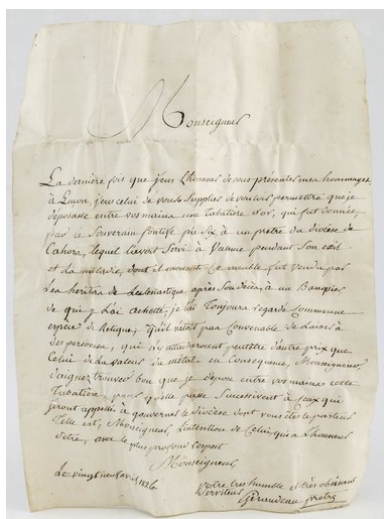 Monseigneur
La dernière fois que j'eus l'honneur de vous présenter mes hommages,
à Lauzun, j'eus celui de vous supplier de vouloir permettre que je
déposasse entre vos mains une tabatière d'or, qui fut donnée,
par le Souverain Pontife pie Six à un prêtre du diocèse de
Cahors, lequel l'avoit servi à Valence pendant son exil
et la maladie, dont il mourut. Ce meuble fut vendu par
les héritiers de l'ecclésiastique après son décès, à un Banquier
de qui je l'ai acheté; je l'ai toujours regardé comme une
espèce de Relique, qu'il n'étoit pas convenable de laisser à
des personnes, qui n'y attacheroient peutêtre d'autre prix que
celui de la valeur du métal. en conséquence, Monseigneur,
daignez trouver bon que je dépose entre vos mains cette
Tabatière, pour qu'elle passe successivement à ceux qui
seront appellés à gouverner le diocèse dont vous êtes le pasteur
Telle est, Monseigneur, l'intention de celui, qui a l'honneur
d'être, avec le plus profond respect
Monseigneur,
Le vingt neuf avril 1826.
votre très humble et très obéissant
serviteur
prêtre